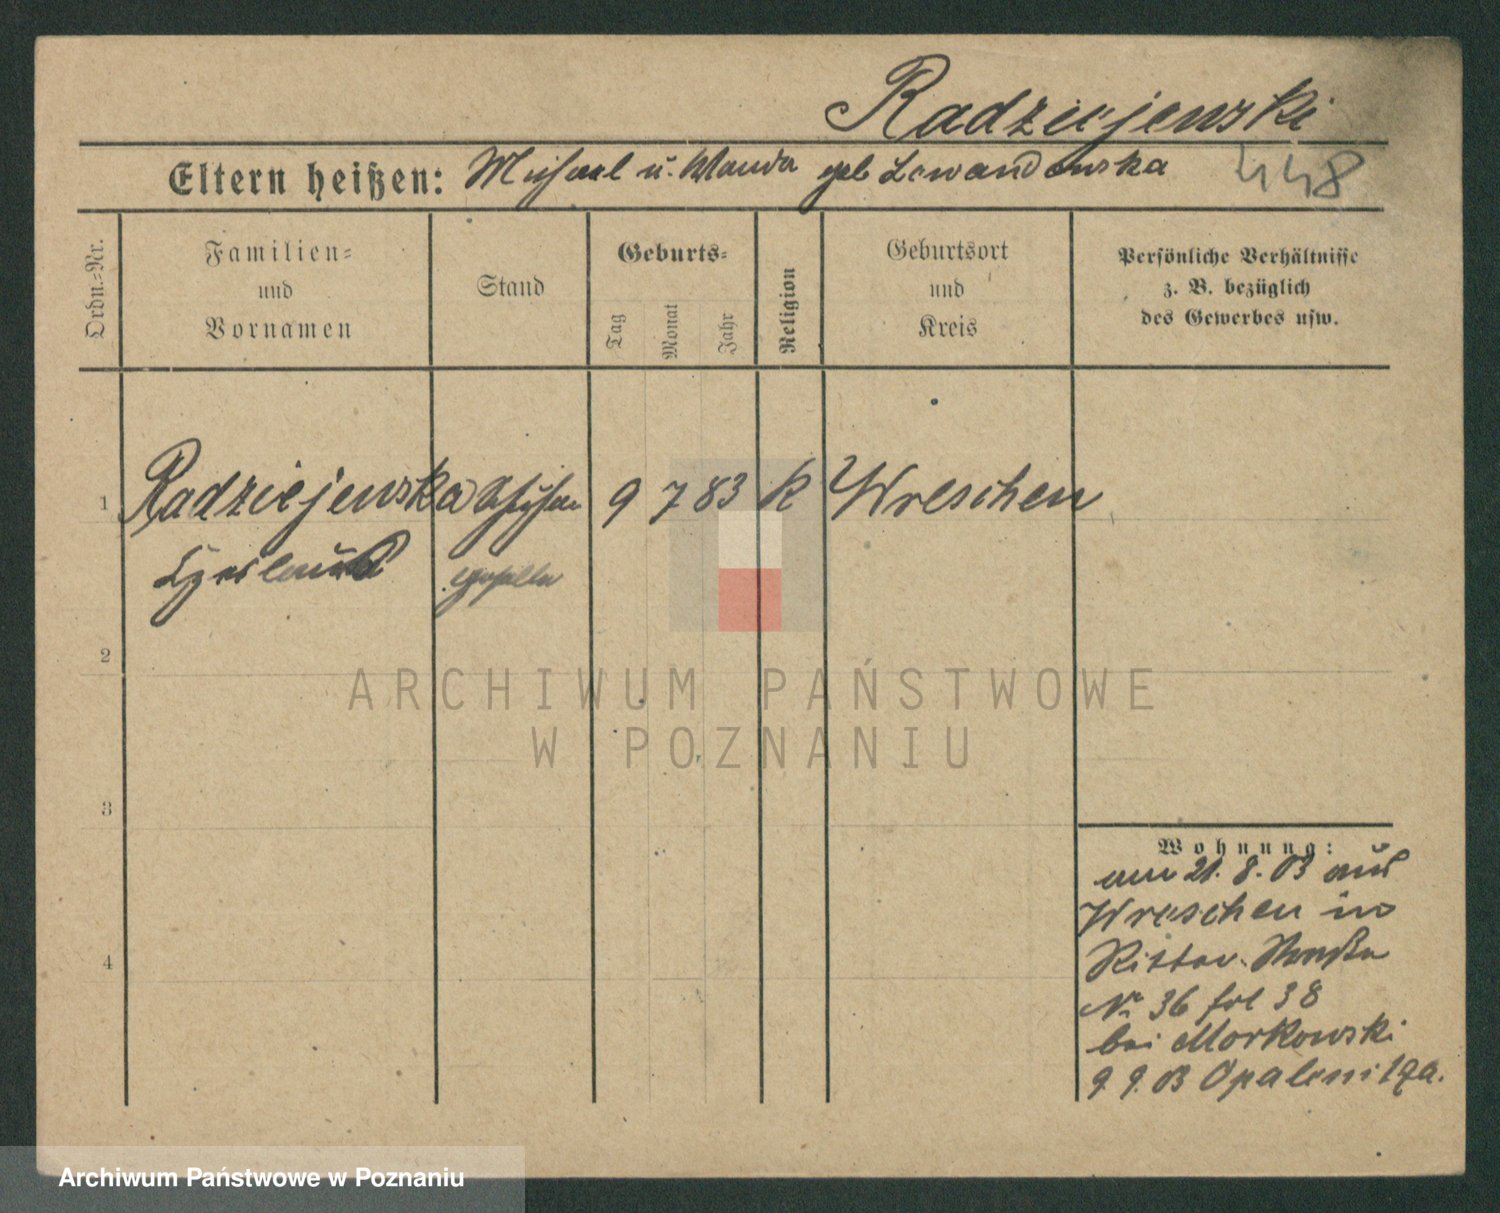 Radziejewski
Eltern heißen: Michael u. Wanda geb Lewandowska
448
Ordn.-Nr.
Familien-
und
Vornamen
Stand
Geburts-
Tag
Monat
Jahr
Religion
Geburtsort
und
Kreis
Persönliche Verhältnisse
z. B. bezüglich
des Gewerbes usw.
1 Radziejewska 9 7 83 K Wreschen
2
3
4
Wohnung:
am 21. 8. 03 aus
Wreschen in
Ritter-Straße
Nr 36 frl 38
bei Morkowski
9 9. 03 Opalenitza.
ARCHIWUM PAŃSTWOWE
W POZNANIU
Archiwum Państwowe w Poznaniu